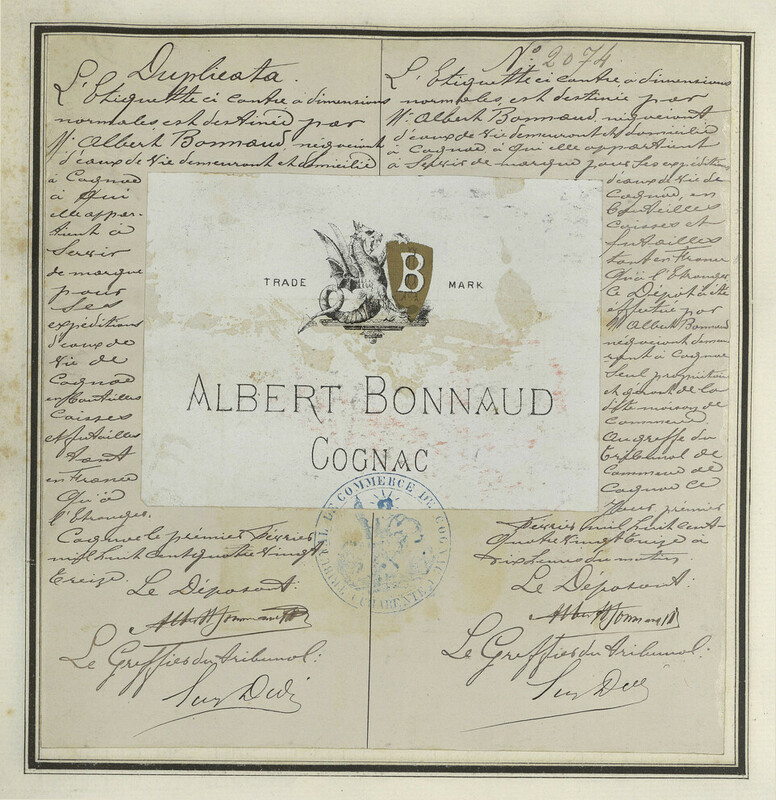 Duplicata.
L'Etiquette ci contre à dimensions
normales, est destinée par
Mr Albert Bonnaud, négociant
d'eaux de Vie demeurant et domicilié
à Cognac
à Qui
elle appar-
tient à
Servir
de marque
pour
Ses
expéditions
d'eaux de
Vie de
Cognac
en Bouteilles
Caisses
et futailles
tant
en France
Qu'à
l'Etranger.
Cognac le prémier Février
mil huit cent quatre vingt
treize.
Le Déposant:
Le Greffier du tribunal:
No 2074
L'Etiquette ci contre à dimensions
normales, est destinée par
Mr Albert Bonnaud, négociant
d'eaux de Vie demeurant et domicilié
à Cognac à Qui elle appartient
à Servir de marque pour Ses expéditions
d'eaux de Vie de
Cognac, en
Bouteilles
Caisses et
futailles
tant en France
Qu'à l'Etranger
Ce Dépôt a été
effectué par
Mr Albert Bonnaud
négociant demeu
rant à Cognac
Seul propriétaire
et gérant de la
dite maison de
Commerce.
Au greffe du
tribunal de
Commerce de
Cognac le
premier
Février mil huit cent
Quatre vingt treize à
dix heures du matin.
Le Déposant:
Le Greffier du tribunal:
TRADE MARK
B
ALBERT BONNAUD
COGNAC
DE COMMERCE DE COGNAC
CHARENTE